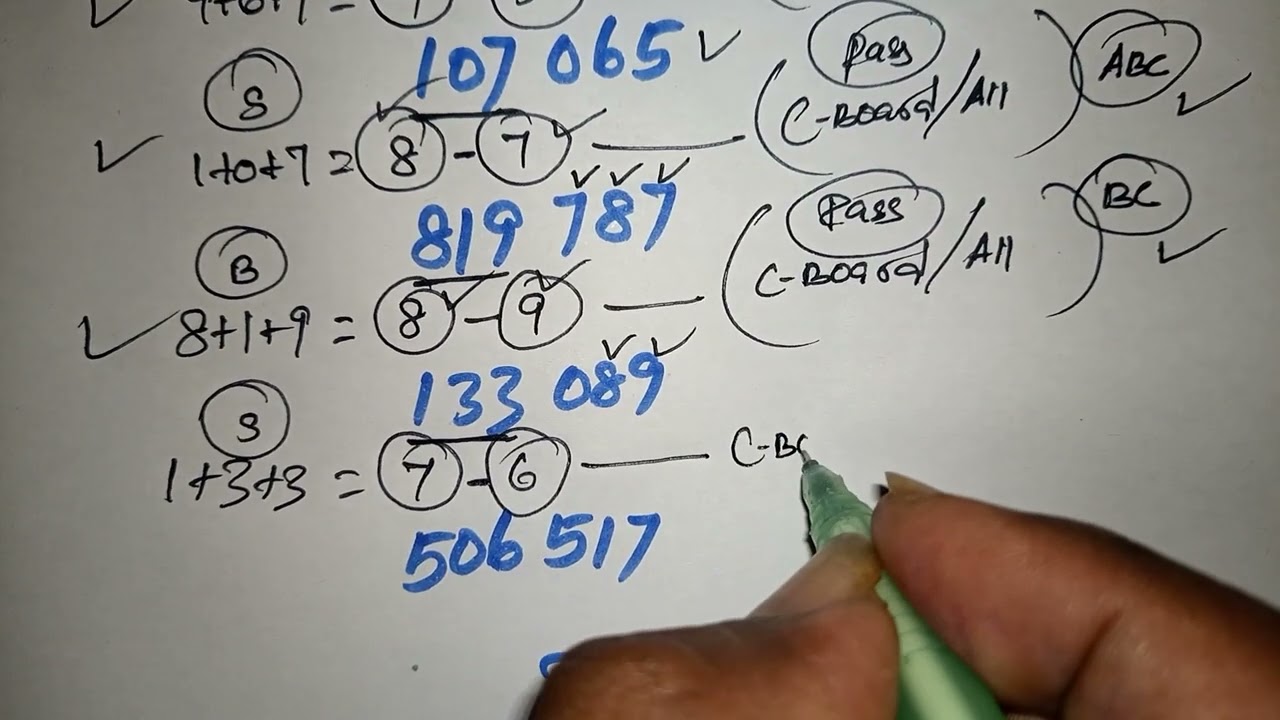 107 065
Pass
ABC
S
C-Board/All
1+0+7 = 8 - 7
819 787
Pass
BC
B
C-Board/All
8+1+9 = 8 - 9
133 089
S
1+3+3 = 7 - 6
C-BO
506 517